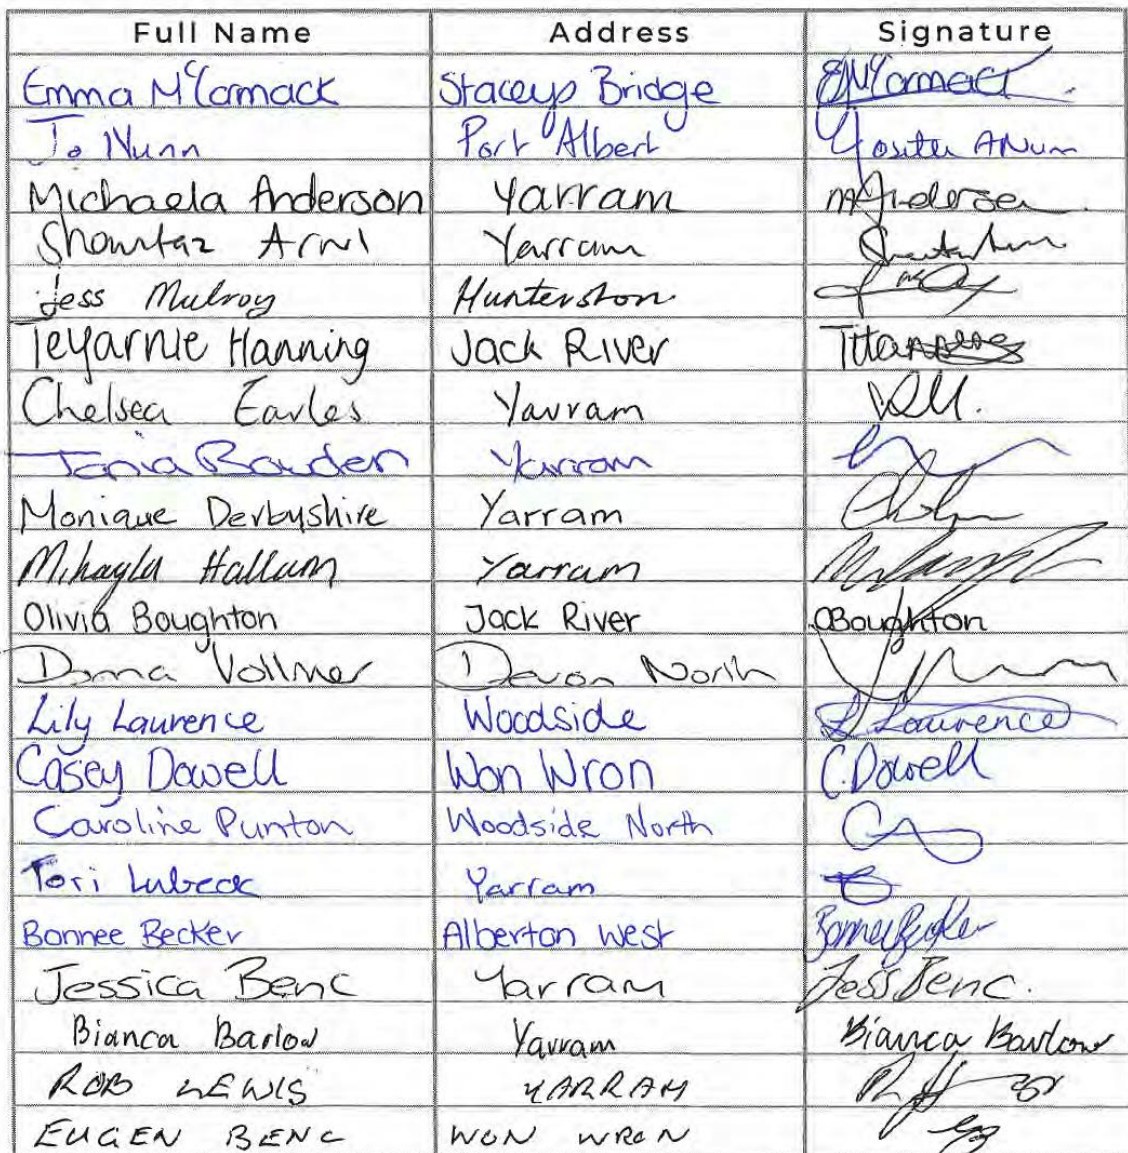 Full Name Address Signature
Emma McCormack Staceys Bridge EMcCormack
Jo Nunn Port Albert
Michaela Anderson Yarram MAnderson
Yarram
Jess Mulroy Hunterston
Teyarnie Hanning Jack River
Chelsea Earles Yarram
Tania Bowden Yarram
Monique Derbyshire Yarram
Mihayla Hallum Yarram
Olivia Boughton Jack River OBoughton
Donna Vollmer Devon North
Lily Laurence Woodside L Laurence
Casey Dowell Won Wron C.Dowell
Caroline Punton Woodside North
Tori Lubeck Yarram
Bonnee Becker Alberton West Bonnee Becker
Jessica Benc Yarram Jess Benc.
Bianca Barlow Yarram Bianca Barlow
ROB LEWIS YARRAM
EUGEN BENC WON WRON